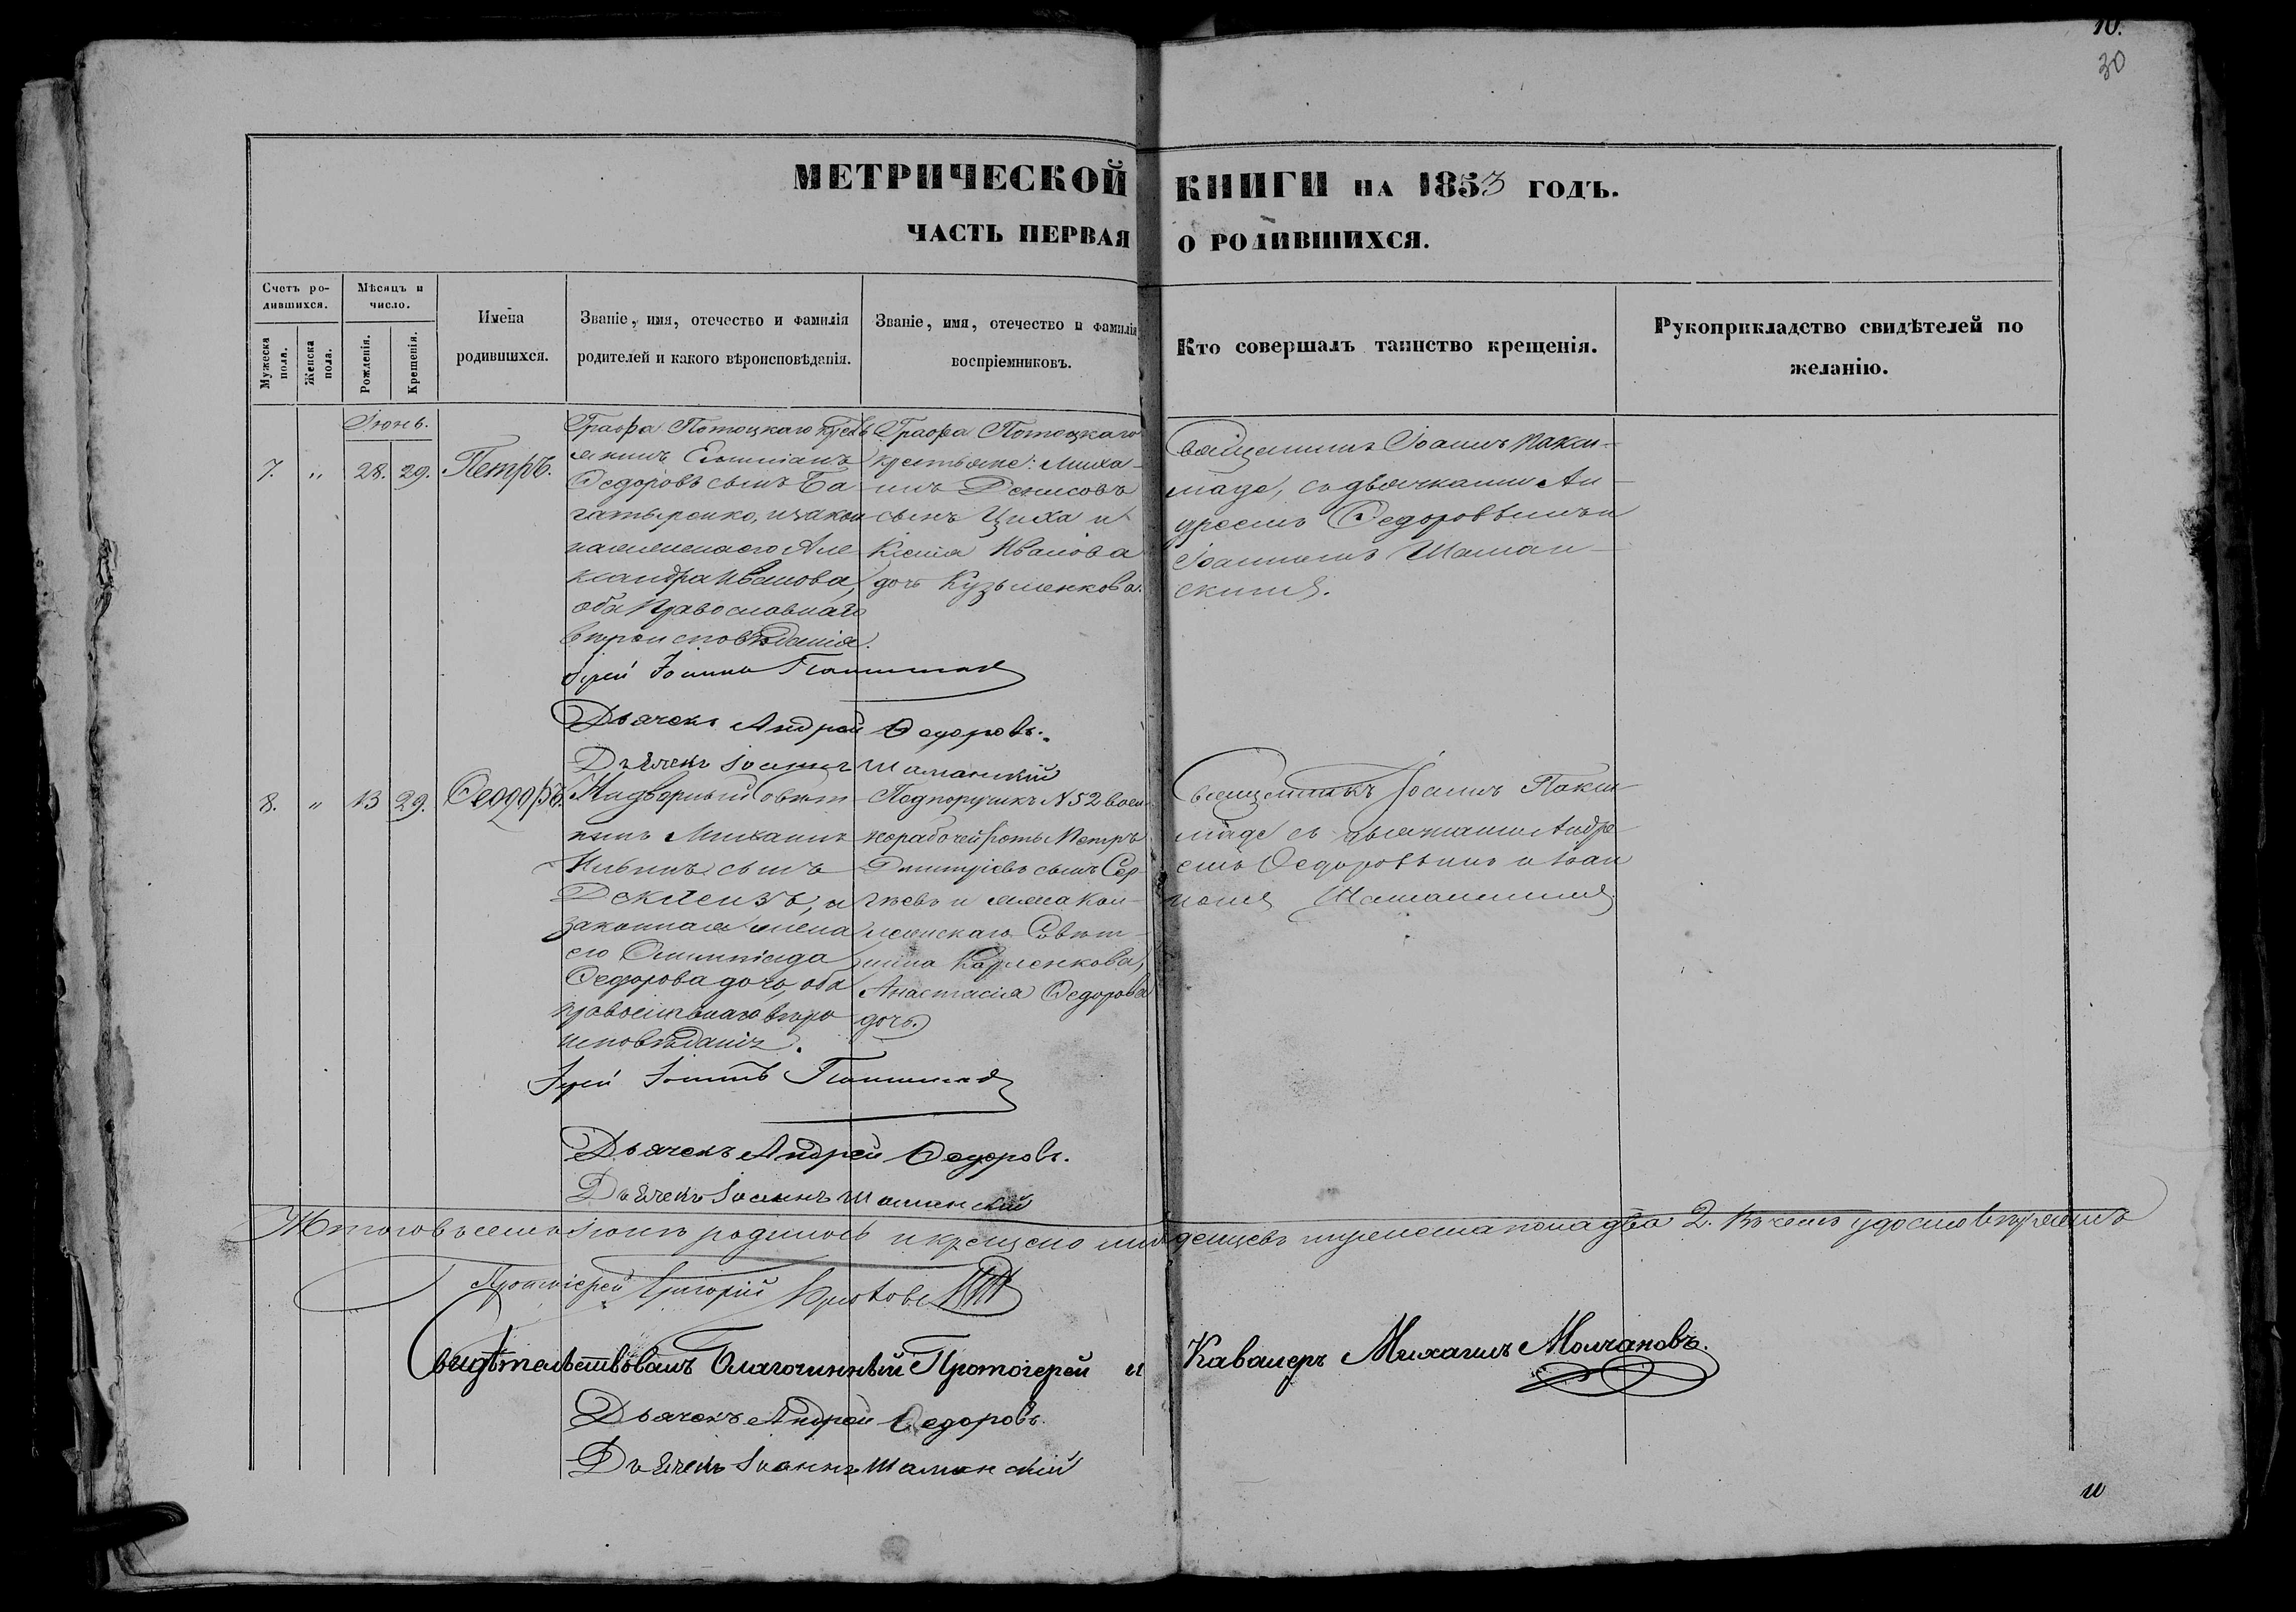 10.
30
МЕТРИЧЕСКОЙ КНИГИ НА 1853 ГОДЪ.
ЧАСТЬ ПЕРВАЯ О РОДИВШИХСЯ.
Счетъ ро-
дившихся.
Мужеска
пола.
Женска
пола.
Мѣсяцъ и
число.
Рожденія.
Крещенія.
Имена
родившихся.
Званіе, имя, отечество и фамилія
родителей и какого вѣроисповѣданія.
Званіе, имя, отечество и фамилія
воспріемниковъ.
Кто совершалъ таинство крещенія.
Рукоприкладство свидѣтелей по
желанію.
Іюнь.
7. „ 28. 29. Петръ.
Графа Потоцкаго крестья
янинъ Емиліанъ
Федоровъ сынъ Ба-
гатыренко, и закон
Александра Иванова,
оба Православнаго
вѣроисповѣданія.
Графа Потоцкаго
крестьяне: Миха-
илъ Денисовъ
сынъ Циха и
Ксенія Иванова
дочь Кузьменкова.
Священникъ Іоаннъ Пакси-
маде, съ дьячками Ан-
дреемъ Федоровымъ и
Іоанномъ Шаман-
скимъ.
Іерей Іоаннъ
Дьячекъ Андрей Федоровъ.
Дьячекъ Іоаннъ Шаманскій
8. „ 13 29. Феодоръ.
Надворный Совѣт-
никъ Михаилъ
Ильинъ сынъ
законная жена
его Олимпіада
Федорова дочь, оба
православнаго вѣро
исповѣданія.
Подпоручикъ N 52 воен-
норабочей роты Петръ
Дмитріевъ сынъ Сер-
гѣевъ и жена Кол-
лежскаго Совѣт-
ника
Анастасія Федорова
дочь.
Священникъ Іоаннъ Пакси-
маде съ дьячками Андре-
емъ Федоровымъ и Іоан
номъ Шаманскимъ
Іерей Іоаннъ
Дьячекъ Андрей Федоровъ.
Дьячекъ Іоаннъ Шаманскій
Итого въ семъ Іюнѣ родилось и крещено младенцевъ мужеска пола два 2. Въ чемъ удостовѣряемъ
Протоіерей Григорій
Свидѣтельствовалъ Благочинный Протоіерей и Кавалеръ Михаилъ Молчановъ.
Дьячекъ Андрей Федоровъ.
Дьячекъ Іоаннъ Шаманскій